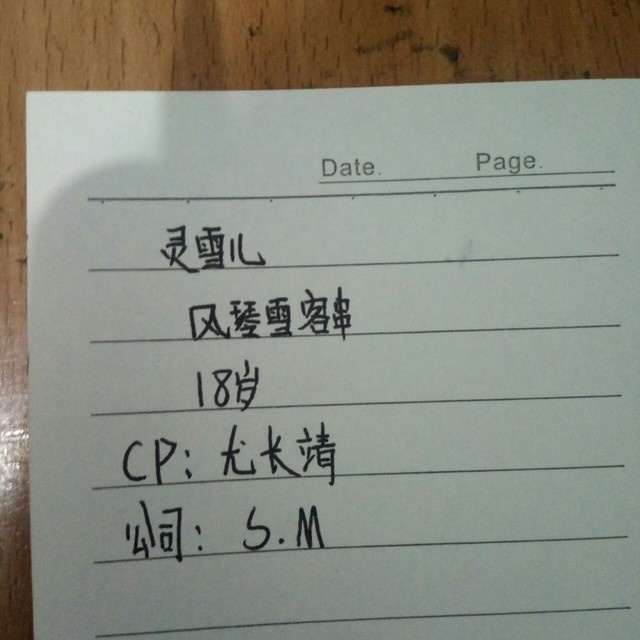 Date. Page.
灵雪儿
风琴雪客串
18岁
CP: 尤长靖
公司: S.M